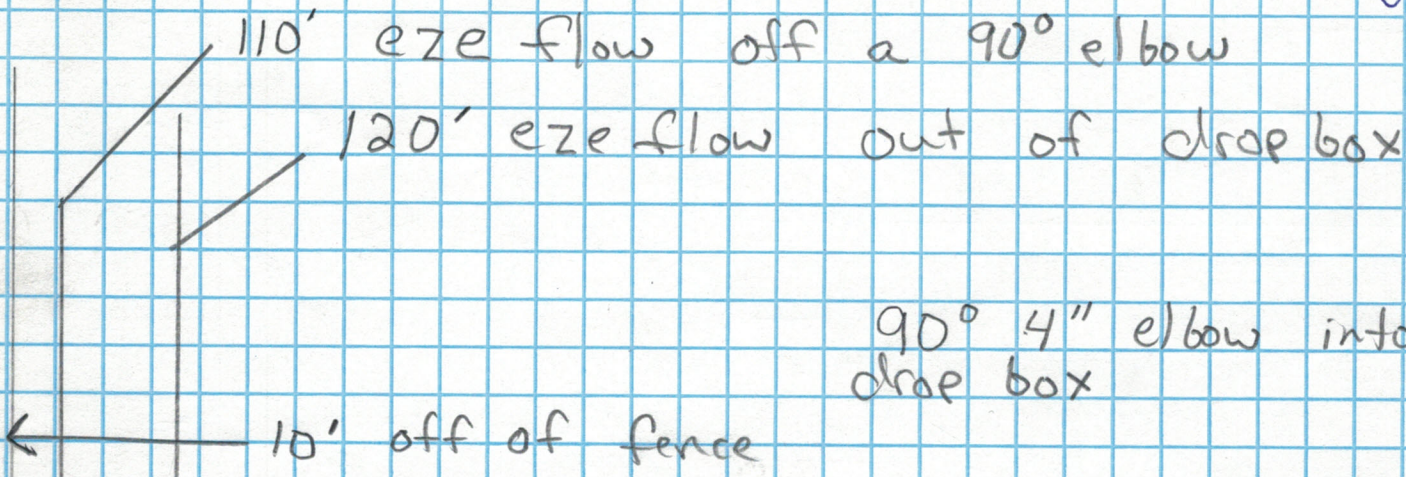 110' eze flow off a 90° elbow
120' eze flow out of drop box
90° 4" elbow into
drop box
10' off of fence